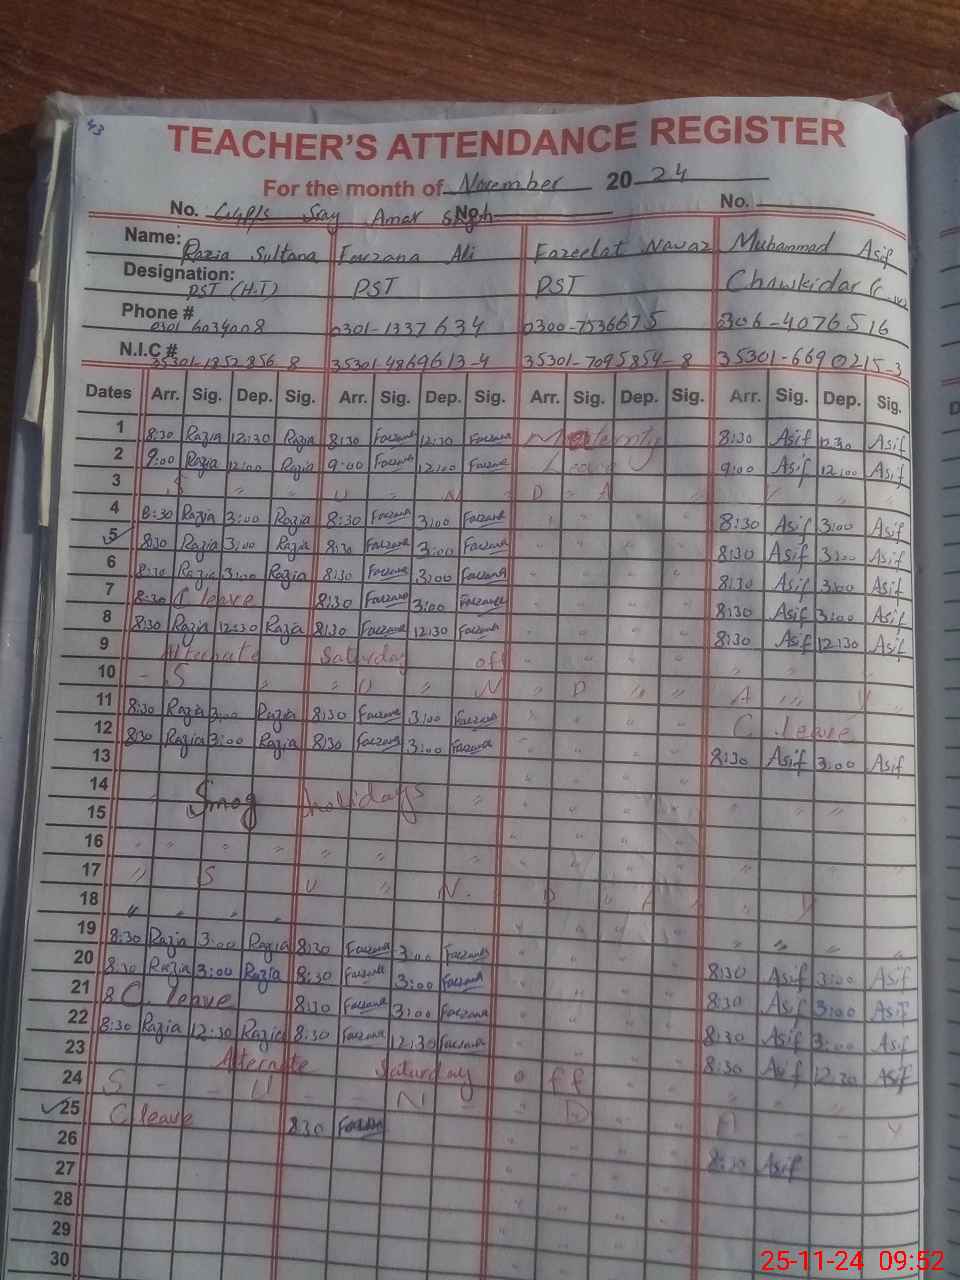 43
TEACHER'S ATTENDANCE REGISTER
For the month of November 2024
No. No. No.
Name: Razia Sultana Fouzana Ali Fazeelat Nawaz Muhammad Asif
Designation: PST (H.T) PST PST Chawkidar
Phone # 0301 6034008 0301-1337634 0300-7536675 0306-4076516
N.I.C # 35301-1852856-8 35301-4869613-4 35301-7095854-8 35301-6690215-3
Dates Arr. Sig. Dep. Sig. Arr. Sig. Dep. Sig. Arr. Sig. Dep. Sig. Arr. Sig. Dep. Sig.
1 8:30 Razia 12:30 Razia 8:30 Fouzana 12:30 Fouzana Maternity 8:30 Asif 12:30 Asif
2 9:00 Razia 12:00 Razia 9:00 Fouzana 12:00 Fouzana Leave 9:00 Asif 12:00 Asif
3 S " " U " N " D " A " Y " "
4 8:30 Razia 3:00 Razia 8:30 Fouzana 3:00 Fouzana 8:30 Asif 3:00 Asif
5 8:30 Razia 3:00 Razia 8:30 Fouzana 3:00 Fouzana 8:30 Asif 3:00 Asif
6 8:30 Razia 3:00 Razia 8:30 Fouzana 3:00 Fouzana 8:30 Asif 3:00 Asif
7 8:30 C leave 8:30 Fouzana 3:00 Fouzana 8:30 Asif 3:00 Asif
8 8:30 Razia 12:30 Razia 8:30 Fouzana 12:30 Fouzana 8:30 Asif 12:30 Asif
9 Alternate Saturday off
10 - S " " U " N " D " " A " Y
11 8:30 Razia 3:00 Razia 8:30 Fouzana 3:00 Fouzana C leave
12 8:30 Razia 3:00 Razia 8:30 Fouzana 3:00 Fouzana 8:30 Asif 3:00 Asif
13
14 Smog holidays
15
16
17 " S U " N. D " A Y
18
19 8:30 Razia 3:00 Razia 8:30 Fouzana 3:00 Fouzana
20 8:30 Razia 3:00 Razia 8:30 Fouzana 3:00 Fouzana 8:30 Asif 3:00 Asif
21 8 C. leave 8:30 Fouzana 3:00 Fouzana 8:30 Asif 3:00 Asif
22 8:30 Razia 12:30 Razia 8:30 Fouzana 12:30 Fouzana 8:30 Asif 3:00 Asif
23 Alternate Saturday off 8:30 Asif 12:30 Asif
24 S - U - N - D A - - Y
25 C leave 8:30 Fouzana
26 8:30 Asif
27
28
29
30
25-11-24 09:52